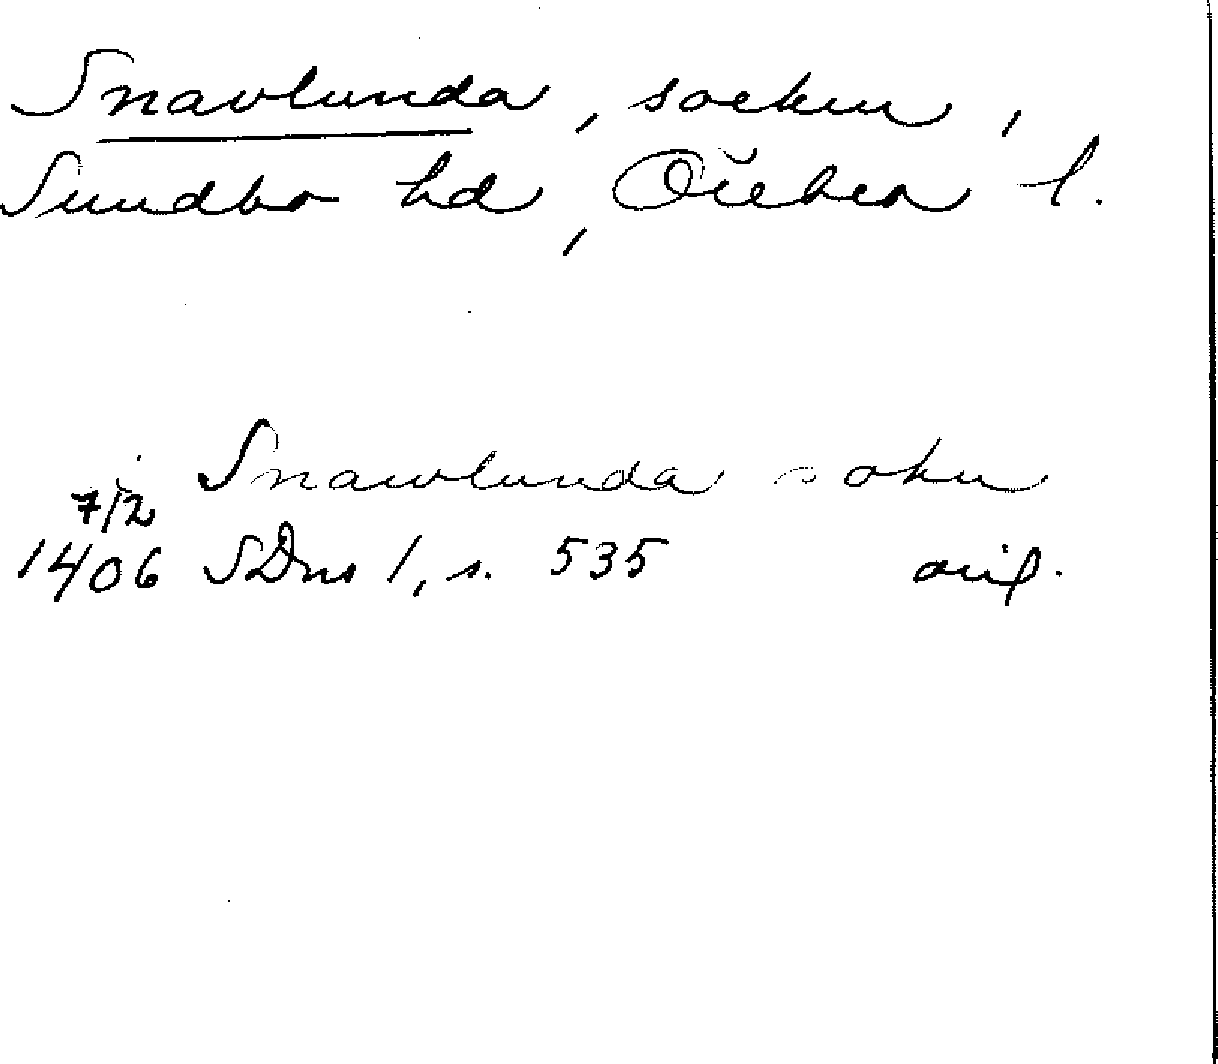 Snavlunda, socken,
Sundbo hd, Örebro l.
Snawlunda sokn
7/2
1406 SDns 1, s. 535 orig.